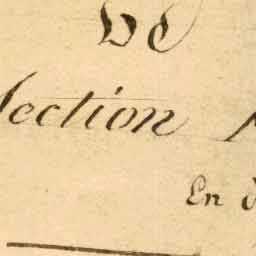 De
lection
En